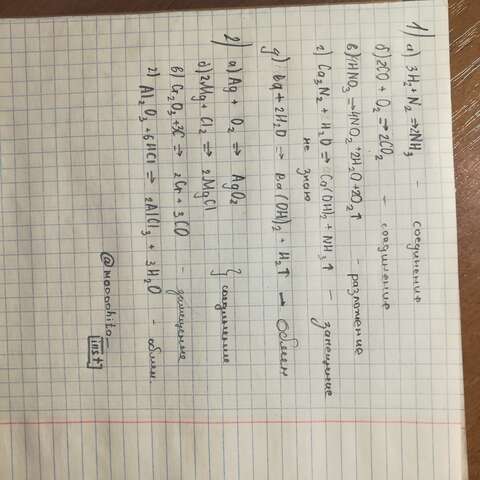 1) а) 3H₂ + N₂ → 2NH₃ - соединения
б) 2CO + O₂ → 2CO₂ - соединение
в) 4HNO₃ → 4NO₂ + 2H₂O + 2O₂↑ - разложение
г) Ca₃N₂ + H₂O → Ca(OH)₂ + NH₃↑ - замещение
не знаю
д) Ba + 2H₂O → Ba(OH)₂ + H₂↑ → Обмен
2) а) Ag + O₂ → AgO₂ } соединение
б) 2Mg + Cl₂ → 2MgCl
в) Cr₂O₃ + 3C → 2Cr + 3CO - замещение
г) Al₂O₃ + 6HCl → 2AlCl₃ + 3H₂O - обмен
[inst]